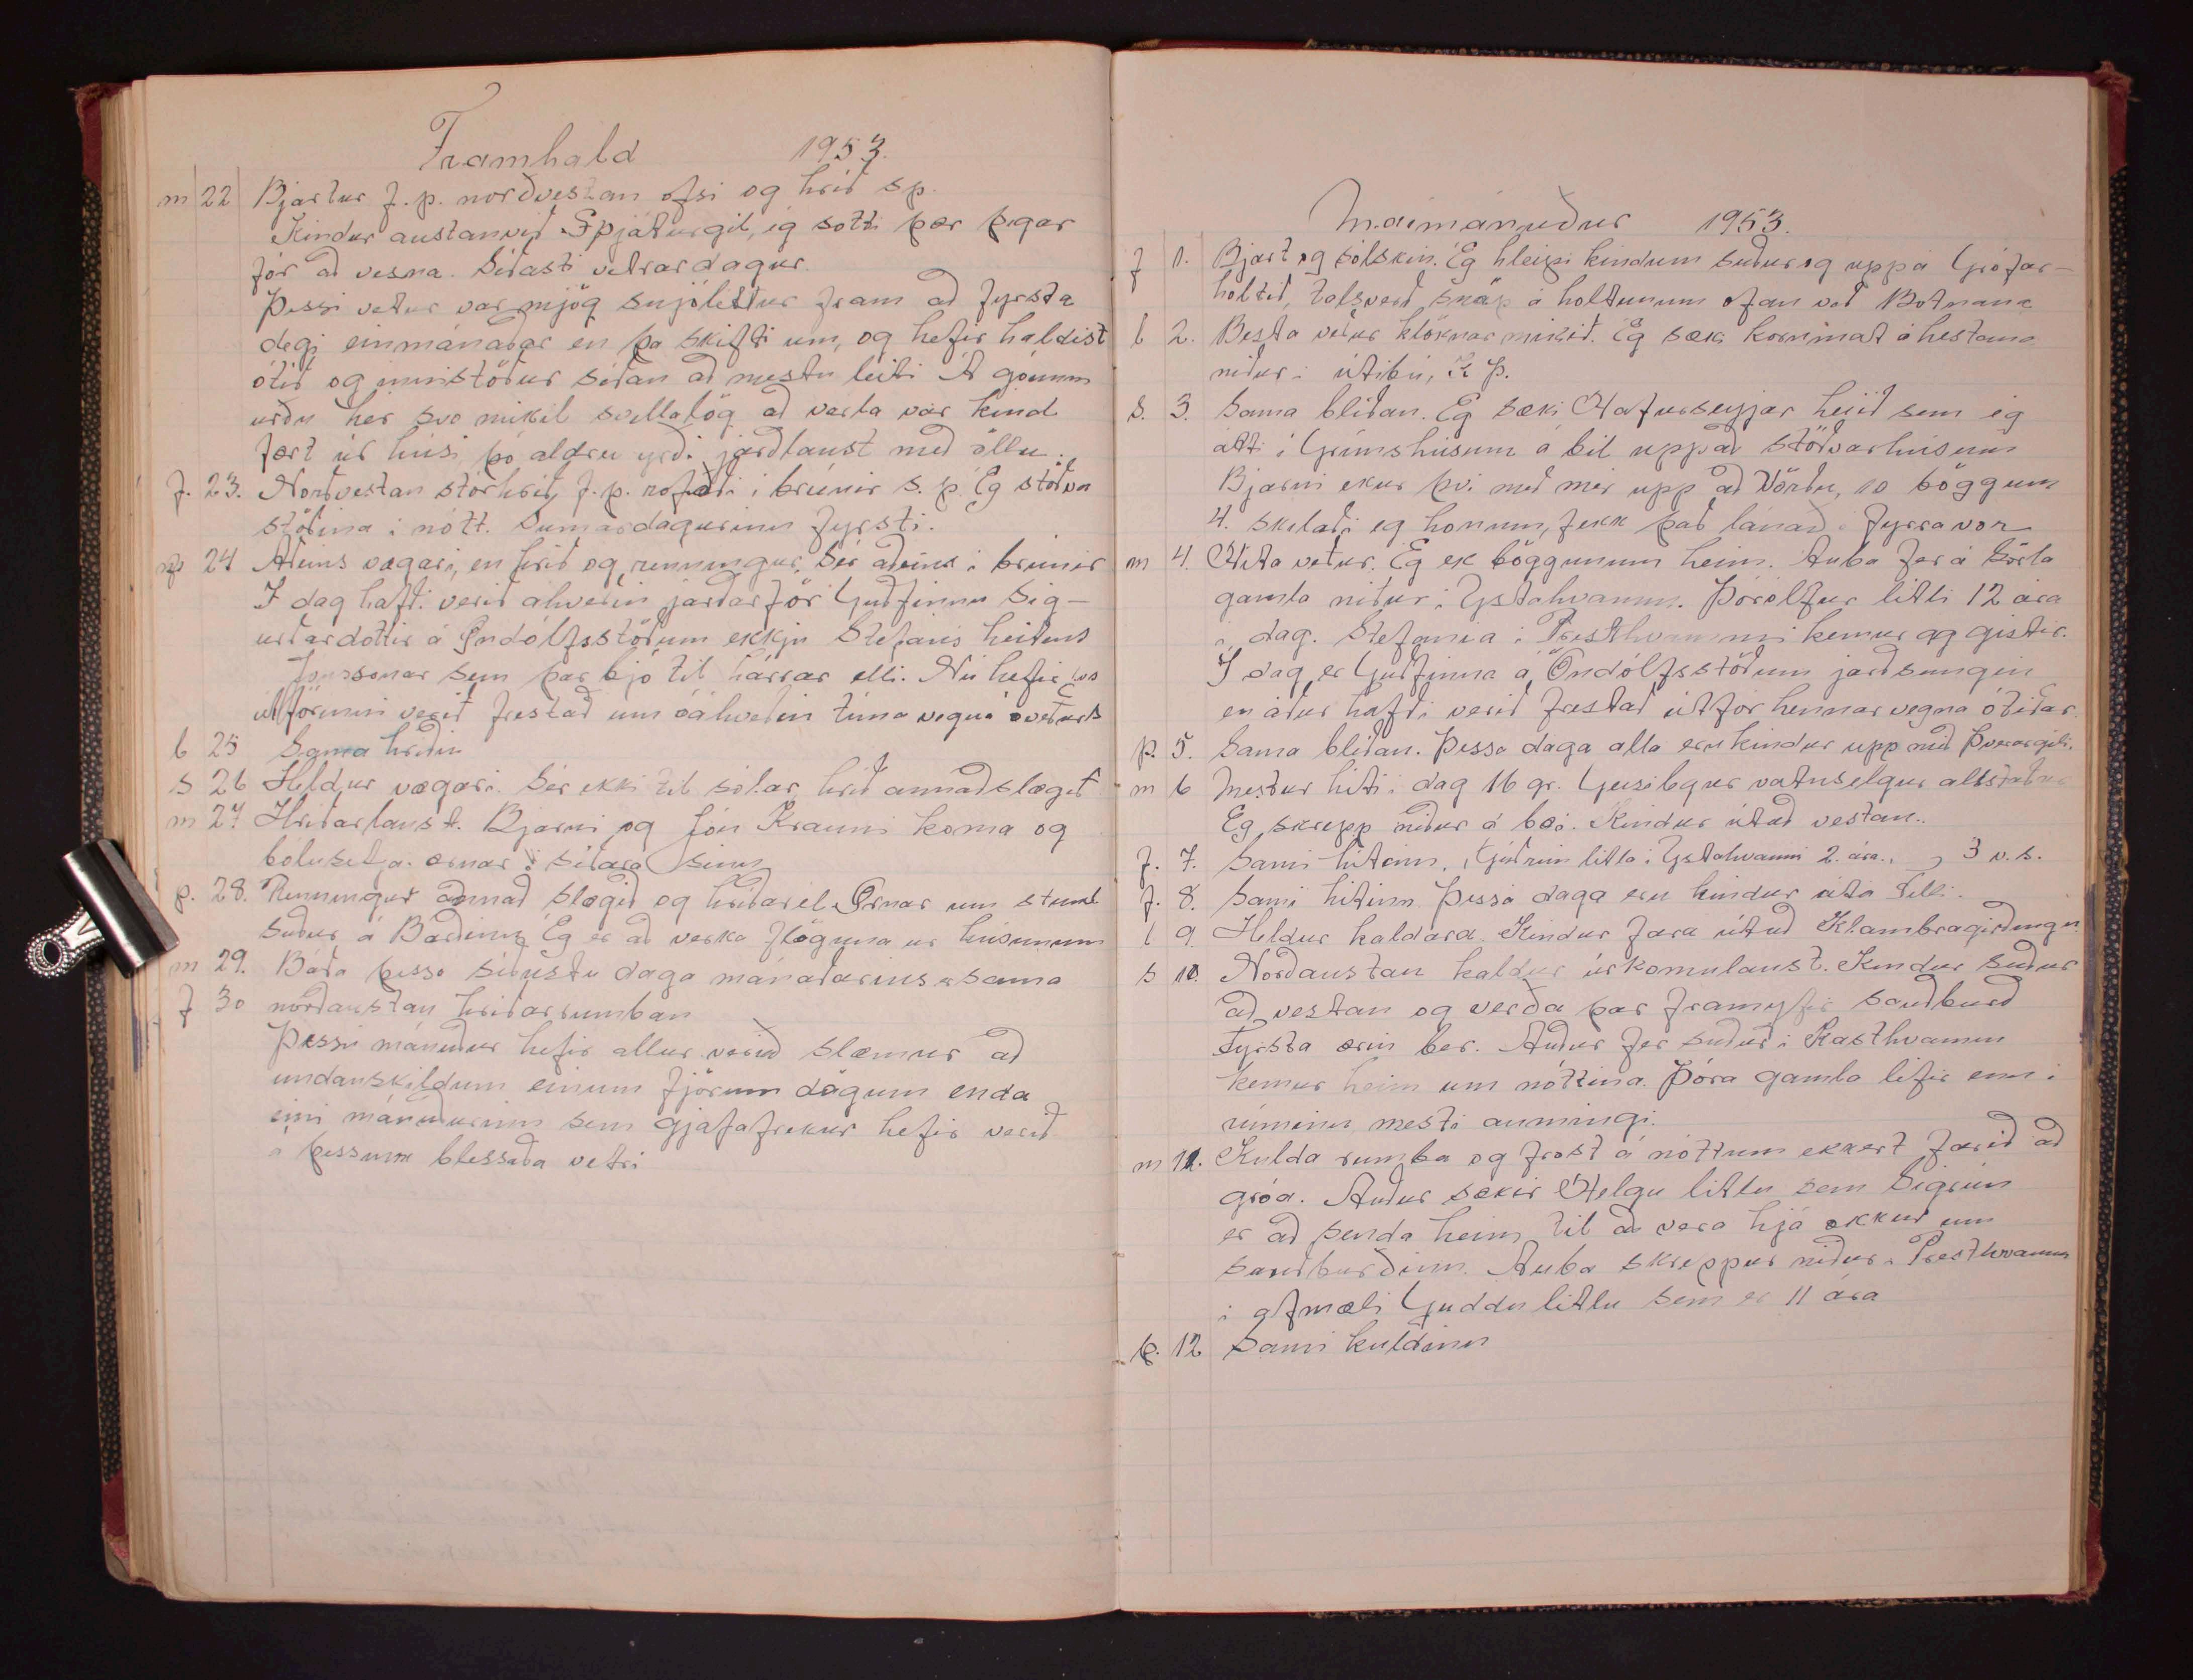 Framhald 1953.
m 22 Bjartur f.p. norðvestan ofsi og hríð s.p.
Kindur austanvið Spjaturgil, ég sótti þær þegar
fór að vesna. Síðasti vetrardagur.
Þessi vetur var mjög snjóléttur fram að fyrsta
degi einmánaðar en þá skifti um, og hefir haldist
ótíð og innistöður síðan að mestu leiti Á góunni
urðu hér svo mikil svellalög að varla var kind
fært úr húsi þó aldrei yrði jarðlaust með öllu.
f. 23. Norðvestan stórhríð, f.p. rofaði í brúnir s.p. Ég stöðva
stöðina í nótt. Sumardagurinn fyrsti.
f 24 Aðeins vægari, en hríð og renningur. Sér aðeins í brúnir
Í dag hafði verið ákveðin jarðarför Guðfinnu Sig-
urðardóttir á Öndólfsstöðum ekkju Stefáns heitins
Jónssonar sem þar bjó til hárrar elli. Nú hefir
útförinni verið frestað um óákveðin tíma vegna óveðurs
l 25 Sama hríðin
s 26 Heldur vægari. Sér ekki til sólar, hríð annaðslægið
m 27 Hríðarlaust. Bjarni og Jón Krauni koma og
bólusetja ærnar í síðara sinn
þ. 28. Renningur annað slægið og hríðarél Ærnar um stund
suður á Barðinu Ég er að verka flöguna úr húsunum
m 29. Báða þessa síðustu daga mánaðarins sama
f 30 norðaustan hríðarrumban
Þessi mánuður hefir allur verið slæmur að
undanskildum einum fjórum dögum enda
eini mánuðurinn sem gjafafrekur hefir verið
á þessum blessaða vetri
Maimánuður 1953.
f 1. Bjart og sólskin. Ég hleipi kindum suður og uppá Grófar-
holtið, talsverð snöp á holtunum ofan við Botnana
l 2. Besta veður klöknar mikið. Ég sæki kornmat á hestana
niður í útibú, K Þ.
s. 3. Sama blíðan. Ég sæki Hafurseyjar heiið sem ég
átti í Grímshúsum á bíl uppað stöðvarhúsum
Bjarni ekur því með mér upp að Vörðu, 10 böggum
4. skilaði ég honum, fekk það lánað í fyrravor
m 4. Hita veður. Ég ek böggunum heim. Auba fer á Sörla
gamla niður í Ystahvamm. Þórólfur litli 12 ára
í dag. Stefanía í Presthvammi kemur og gistir.
Í dag er Guðfinna á Öndólfsstöðum jarðsungin
en áður hafði verið frestað útför hennar vegna ótíðar.
þ. 5. Sama blíðan. Þessa daga alla eru kindur upp með Þverárgili.
m 6 Mestur hiti í dag 16 gr. Geisilegur vatnselgur allstaðar
Ég skrepp niður á bæi. Kindur útað vestan.
f. 7. Sami hitinn, Guðrún litla í Ystahvammi 2. ára., 3 v. s.
f. 8. Sami hitinn Þessa daga eru kindur útá Felli.
l 9. Heldur kaldara Kindur fara útað Klambragirðingu.
s 10. Norðaustan kaldur úrkomulaust. Kindur suður
að vestan og verða þar framyfir sauðburð
Fyrsta ærin ber. Auður fer suður í Kasthvamm
kemur heim um nóttina. Þóra gamla lifir enn í
rúminu mesti aumingi.
m 11. Kulda rumba og frost á nóttum ekkert farið að
gróa. Auður sækir Helgu litlu sem Sigrún
er að senda heim til að vera hjá okkur um
sauðburðinn. Auba skreppur niður í Presthvamm
í afmæli Guddu litlu sem er 11 ára
þ. 12 Sami kuldinn